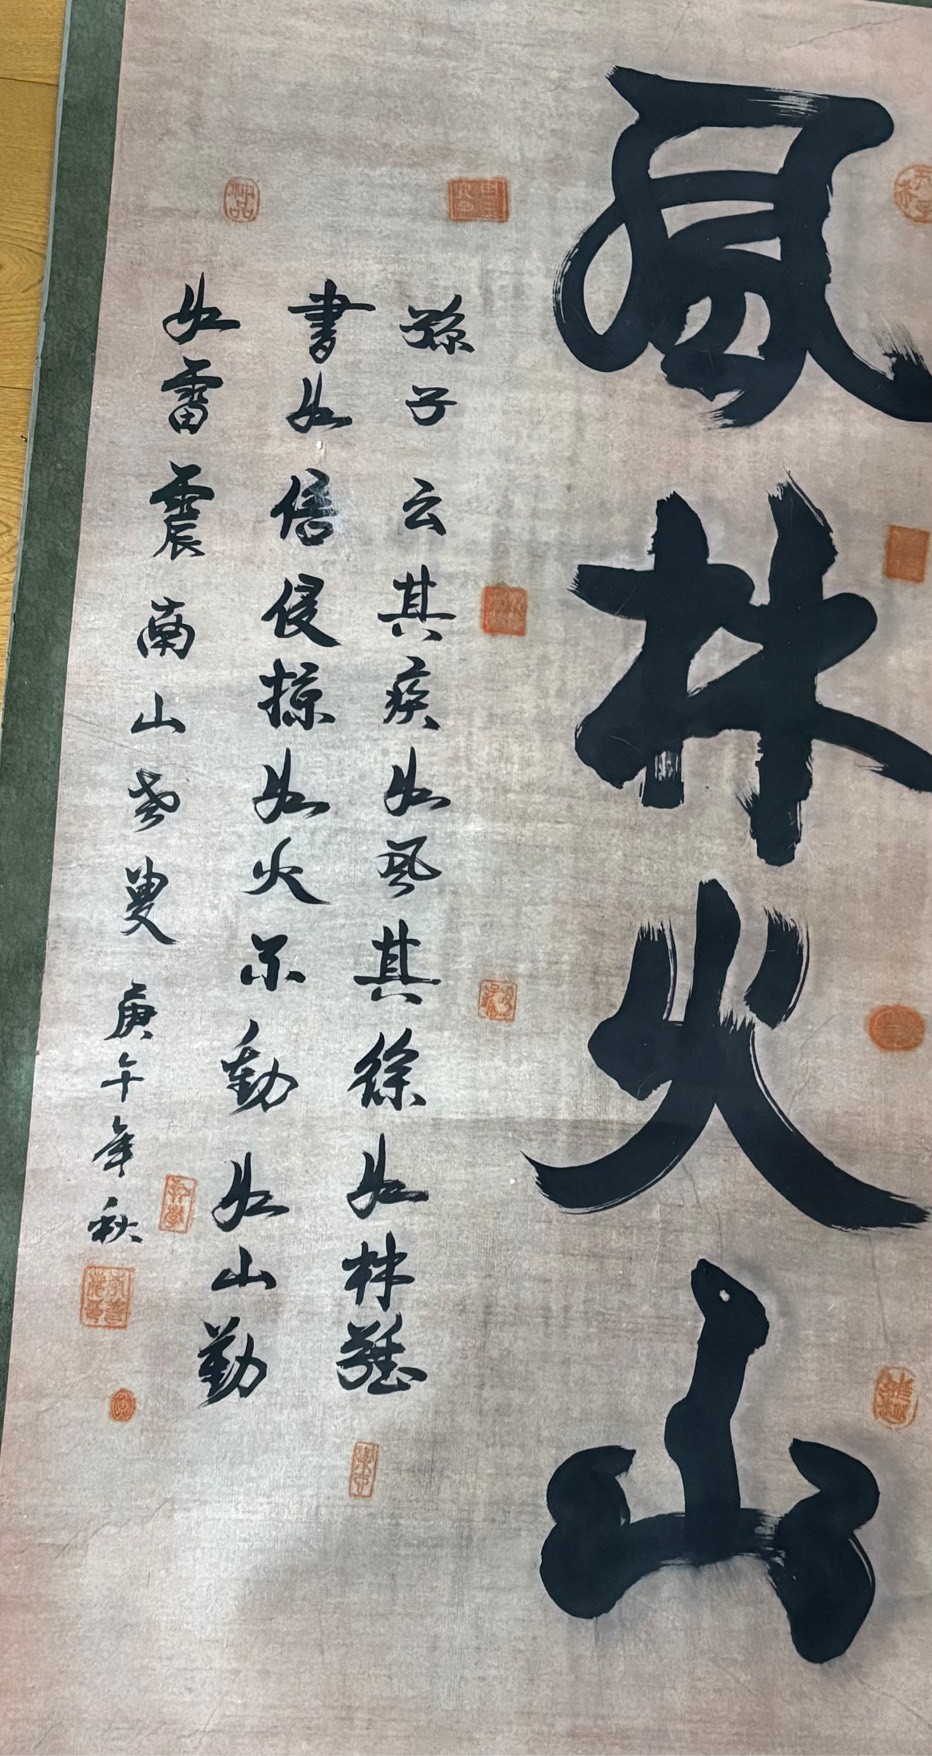 風林火山
孫子云其疾如風其徐如林
書如侵掠如火不動如山勤
如雷震南山老叟庚午年秋